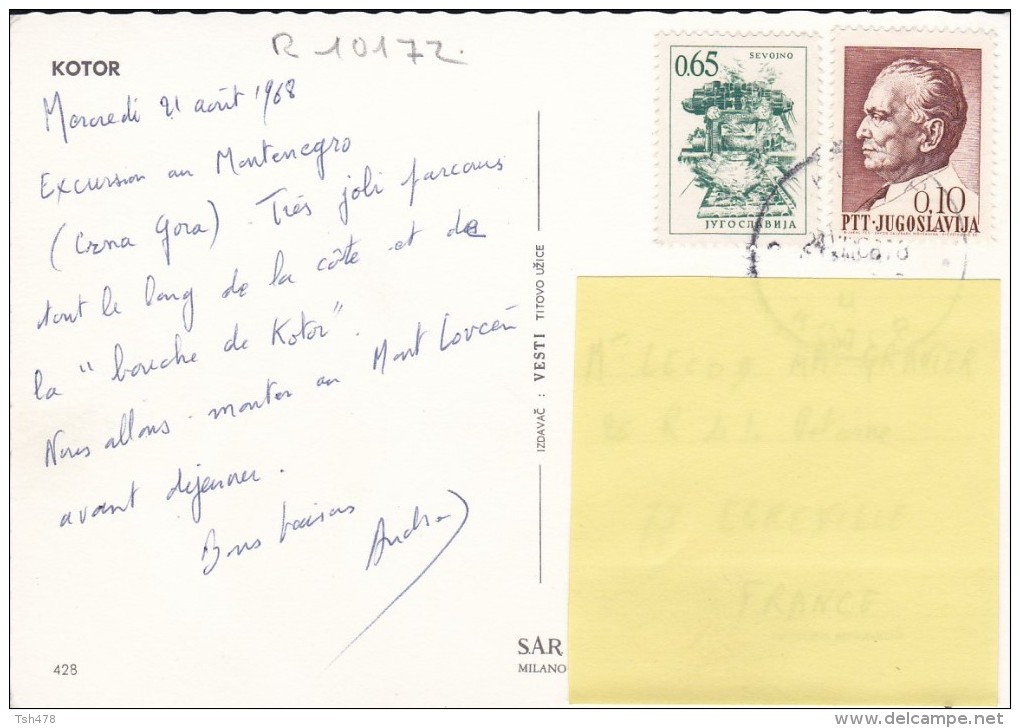 R 10172.
KOTOR
Mercredi 21 août 1968
Excursion au Montenegro
(Crna Gora). Très joli parcours
tout le long de la côte et de
la "bouche de Kotor".
Nous allons monter au Mont Lovcen
avant déjeuner.
Bons baisers
André
428
IZDAVAČ : VESTI TITOVO UŽICE
S.A.R
MILANO
0.65
SEVOJNO
ЈУГОСЛАВИЈА
0,10
PTT·JUGOSLAVIJA
FRANCE
Tsh478
delcampe.net